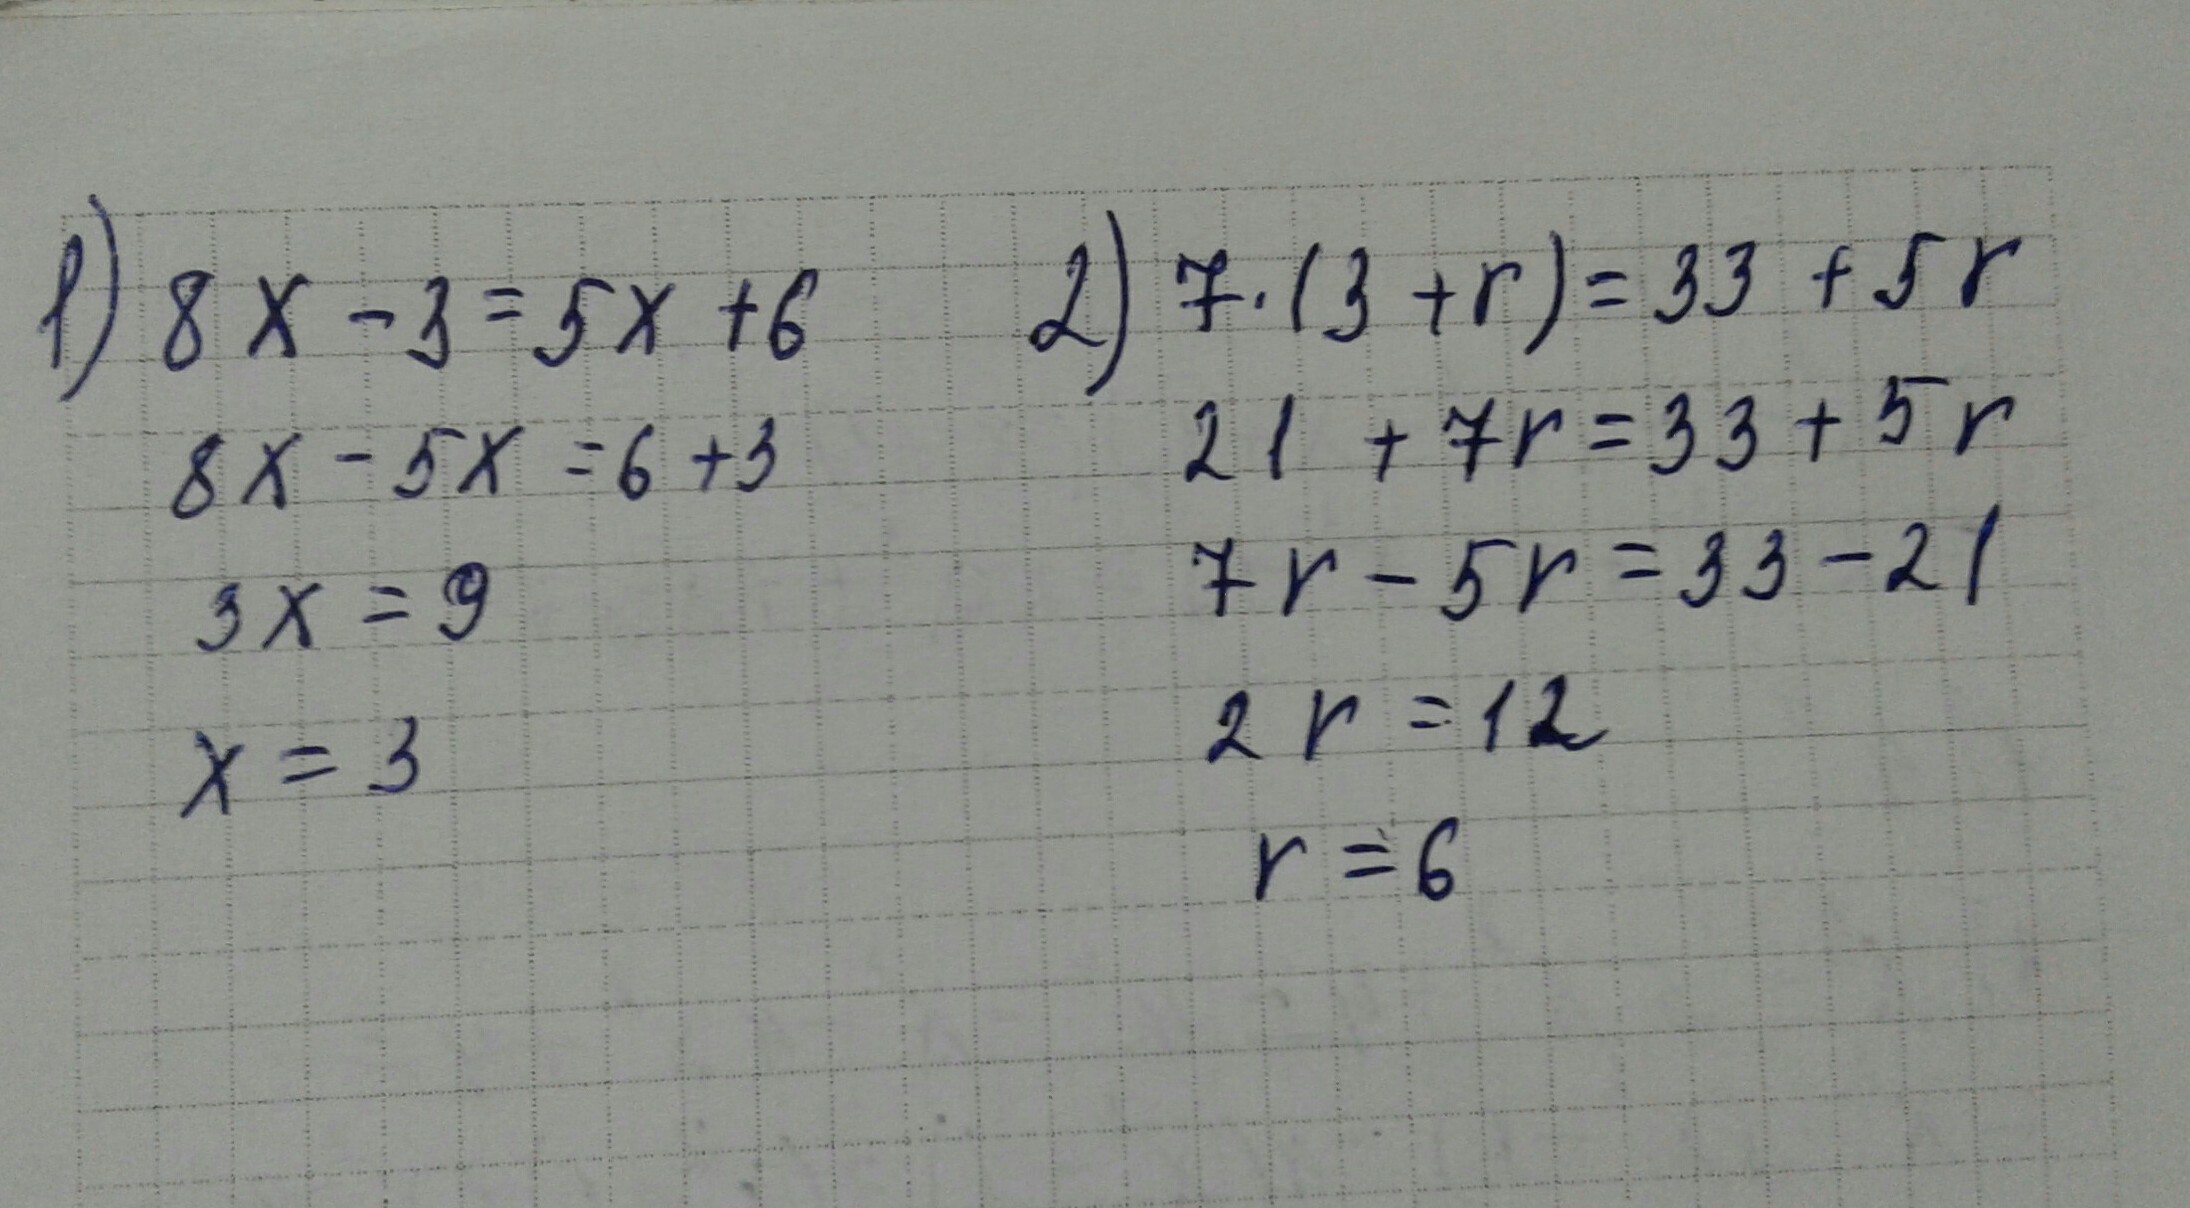 1) 8x - 3 = 5x + 6
8x - 5x = 6 + 3
3x = 9
x = 3
2) 7·(3 + r) = 33 + 5r
21 + 7r = 33 + 5r
7r - 5r = 33 - 21
2r = 12
r = 6